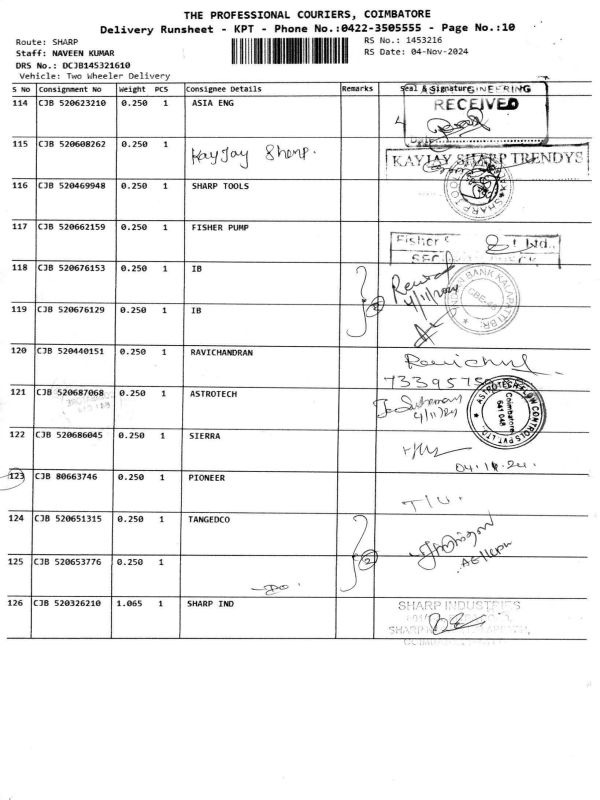 THE PROFESSIONAL COURIERS, COIMBATORE
Delivery Runsheet - KPT - Phone No.:0422-3505555 - Page No.:10
Route: SHARP
RS No.: 1453216
Staff: NAVEEN KUMAR
RS Date: 04-Nov-2024
DRS No.: DCJB145321610
Vehicle: Two Wheeler Delivery
S No Consignment No Weight PCS Consignee Details Remarks Seal & Signature
114 CJB 520623210 0.250 1 ASIA ENG
RECEIVED
115 CJB 520608262 0.250 1 KayJay Sharp.
KAYJAY SHARP TRENDYS
116 CJB 520469948 0.250 1 SHARP TOOLS
117 CJB 520662159 0.250 1 FISHER PUMP
Fisher
118 CJB 520676153 0.250 1 IB
4/11/2024
INDIAN BANK KALAPATTI BR.
119 CJB 520676129 0.250 1 IB
2
120 CJB 520440151 0.250 1 RAVICHANDRAN
121 CJB 520687068 0.250 1 ASTROTECH
4/11/24
ASTROTECH FLOW CONTROLS PVT. LTD.
Coimbatore
641 048
122 CJB 520686045 0.250 1 SIERRA
04.11.24.
123 CJB 80663746 0.250 1 PIONEER
124 CJB 520651315 0.250 1 TANGEDCO
2
125 CJB 520653776 0.250 1
126 CJB 520326210 1.065 1 SHARP IND
SHARP INDUSTRIES